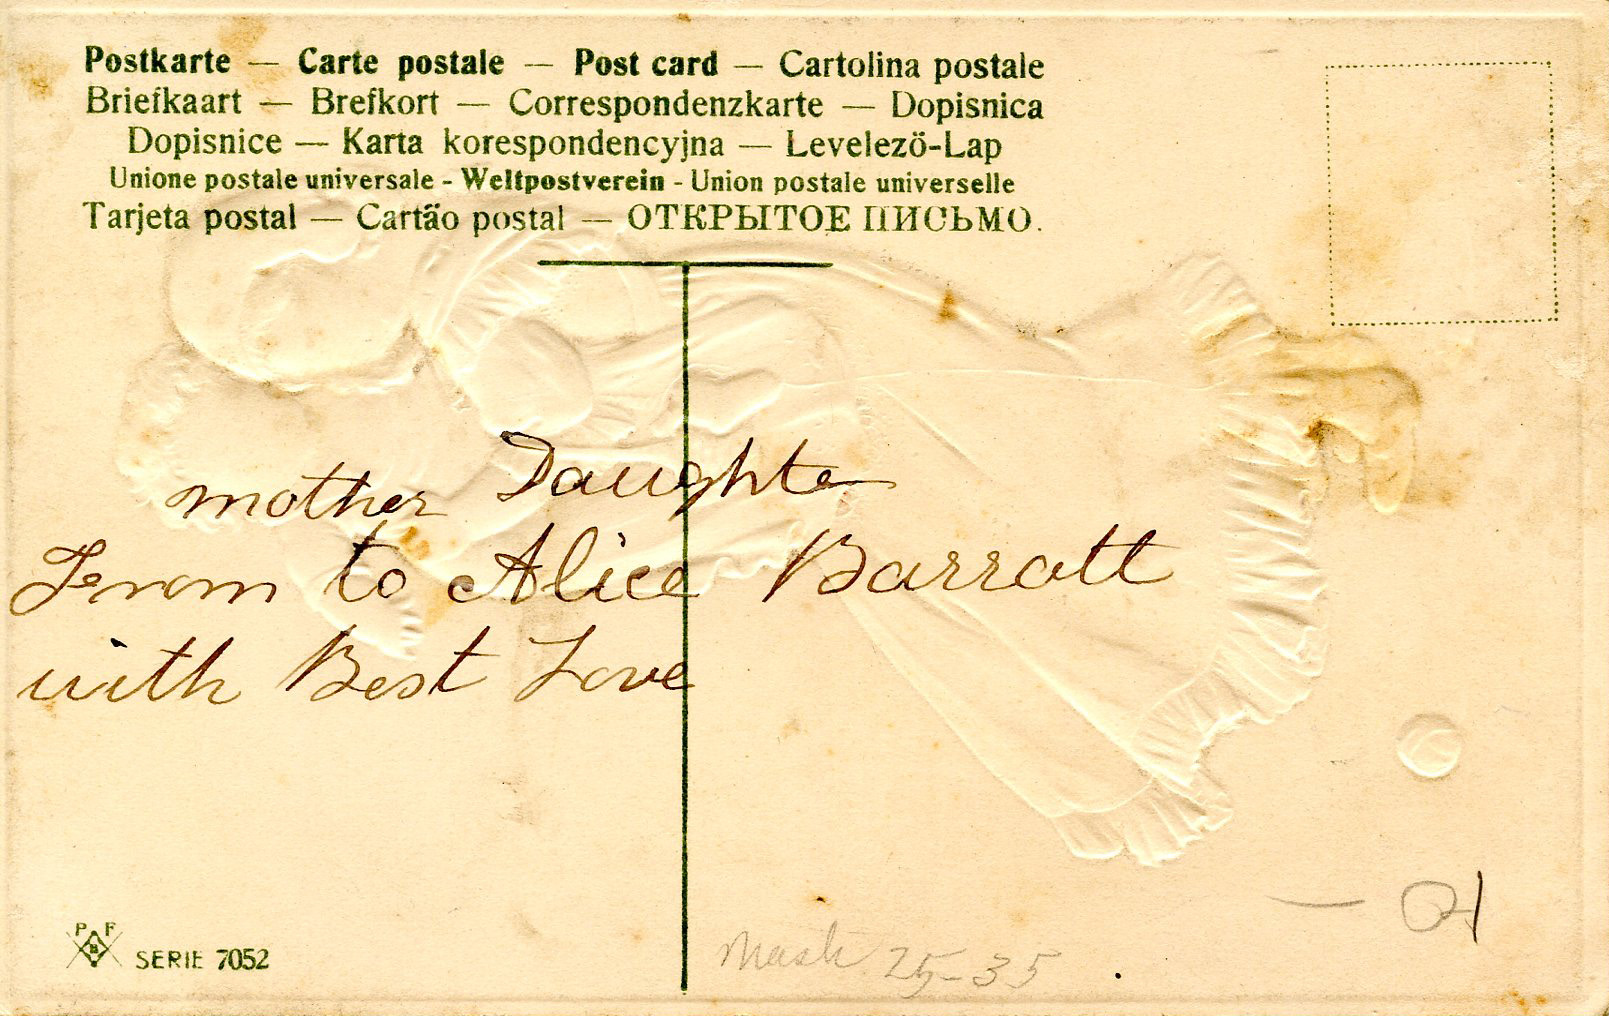 Postkarte — Carte postale — Post card — Cartolina postale
Briefkaart — Brefkort — Correspondenzkarte — Dopisnica
Dopisnice — Karta korespondencyjna — Levelezö-Lap
Unione postale universale - Weltpostverein - Union postale universelle
Tarjeta postal — Cartäo postal — ОТКРЫТОЕ ПИСЬМО.
mother Daughter
From to Alice Barratt
with Best Love
P F
B
SERIE 7052
25-35